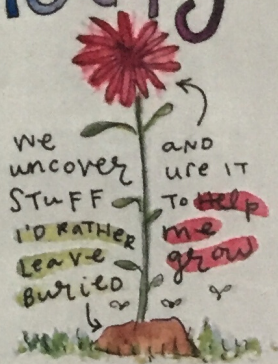 we
uncover
STUFF
I'D RATHER
Leave
Buried
AND
use IT
To Help
me
grow